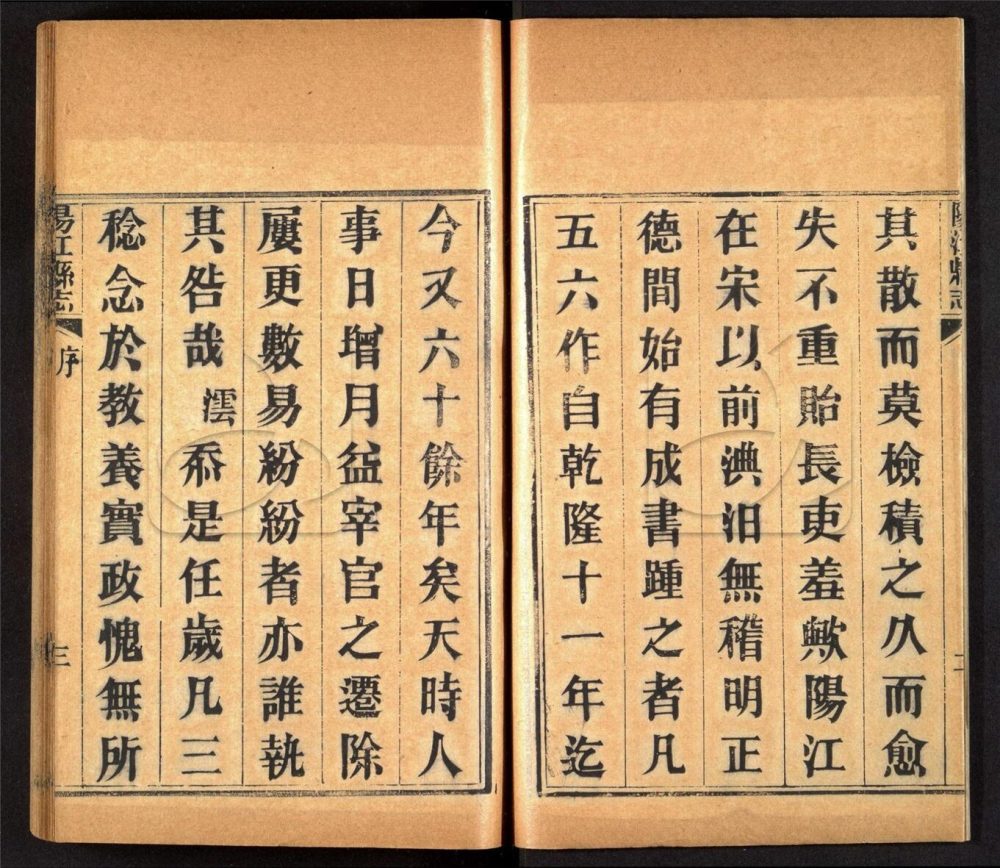 其散而莫檢積之久而愈
失不重貽長吏羞歟陽江
在宋以前淟汩無稽明正
德間始有成書踵之者凡
五六作自乾隆十一年迄
今又六十餘年矣天時人
事日增月益宰官之遷除
屢更數易紛紛者亦誰執
其咎哉澐忝是任歲凡三
稔念於教養實政愧無所
陽江縣志
序
三